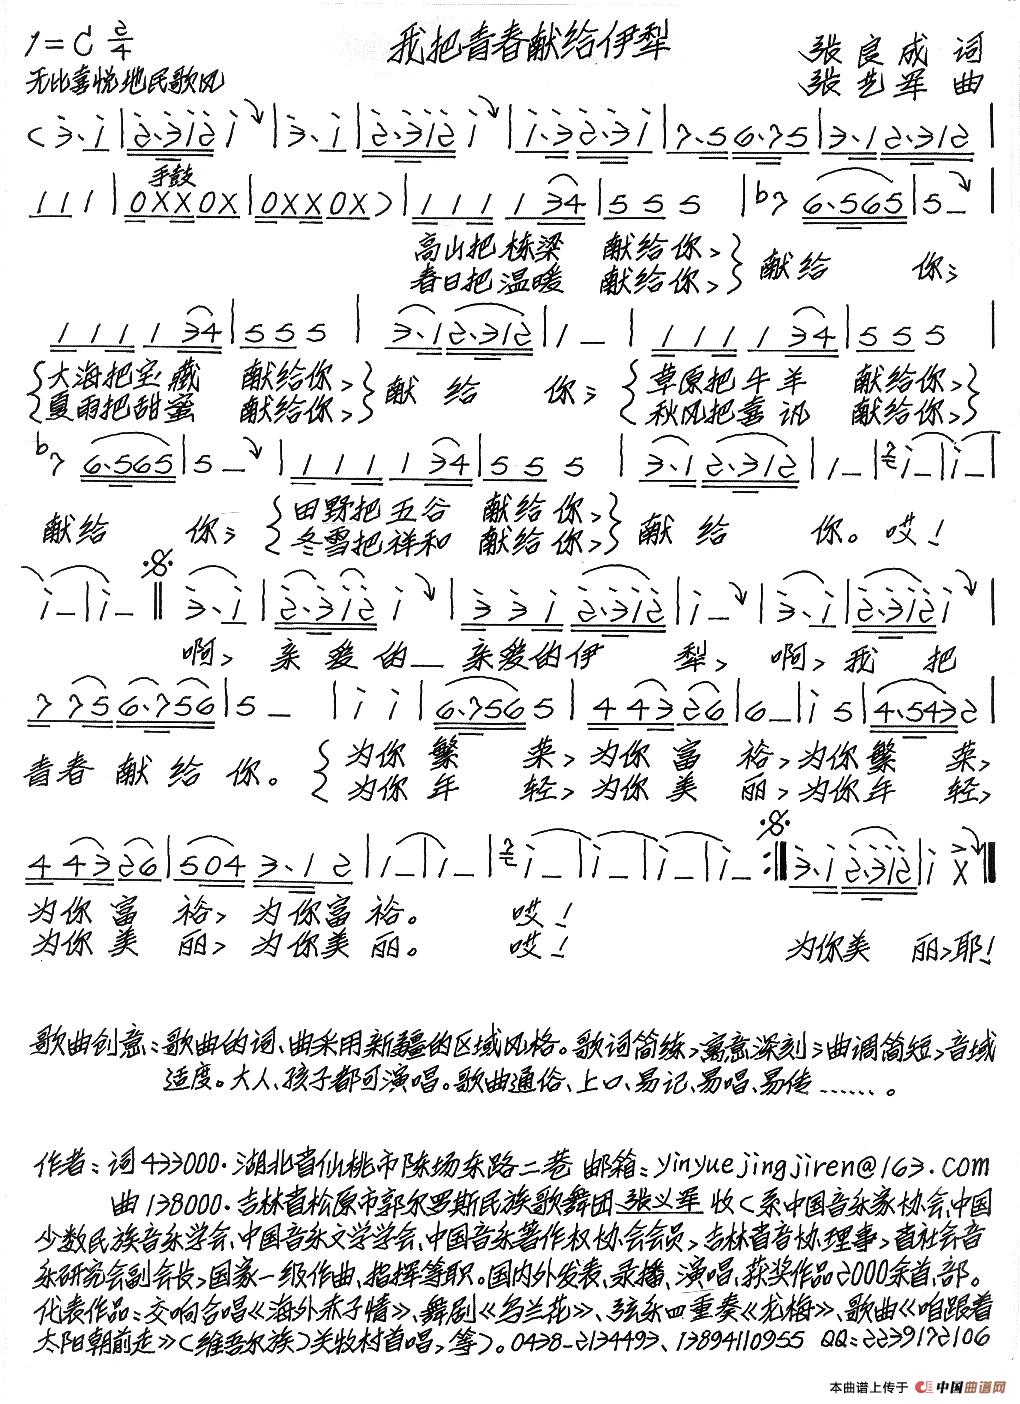 1=C 2/4
我把青春献给伊犁
张良成 词
无比喜悦地 民歌风
张艺军 曲
(3·1|2·312 1|3·1|2·312 1|1·3 2·31|7·5 6·75|3·1 2·312|
手鼓
111|0XX0X|0XX0X)|111 134|555|b7 6·565|5-|
高山把栋梁 献给你,}献给 你;
春日把温暖 献给你,
111 134|555|3·1 2·312|1-|111 134|555|
{大海把宝藏 献给你,}献给 你;{草原把牛羊 献给你,}
夏雨把甜蜜 献给你, 秋风把喜讯 献给你,
b7 6·565|5-|111 134|555|3·1 2·312|1-|1-|1-|
献给 你;{田野把五谷 献给你,}献给 你。哎!
冬雪把祥和 献给你,
1-|1-‖3·1|2·312 1|331 2·312|1-|3·1|2·312 1|
啊, 亲爱的— 亲爱的伊 犁, 啊,我 把
775 6·756|5-|11|6·756 5|443 26|6-|15|4·543 2|
青春 献给 你。{为你 繁 荣,为你 富 裕,为你 繁 荣,
为你 年 轻,为你 美 丽,为你 年 轻,
443 26|504 3·12|1-|1-|1-|1-|1-|1-:‖3·1 2·312|1 X‖
为你富 裕,为你富裕。 哎!
为你美 丽,为你美丽。 哎! 为你美 丽,耶!
歌曲创意:歌曲的词、曲采用新疆的区域风格。歌词简练,寓意深刻;曲调简短,音域
适度。大人、孩子都可演唱。歌曲通俗、上口、易记、易唱、易传……。
作者:词433000·湖北省仙桃市陈场东路二巷 邮箱:yinyuejingjiren@163.com
曲138000·吉林省松原市郭尔罗斯民族歌舞团 张义军 收(系中国音乐家协会、中国
少数民族音乐学会、中国音乐文学学会、中国音乐著作权协会会员,吉林省音协理事,省社会音
乐研究会副会长,国家一级作曲、指挥等职。国内外发表、录播、演唱、获奖作品2000余首、部。
代表作品:交响合唱《海外赤子情》、舞剧《乌兰花》、弦乐四重奏《龙梅》、歌曲《咱跟着
太阳朝前走》(维吾尔族)关牧村首唱,等)。0438-2134493、13894110955 QQ:2239172106
本曲谱上传于 中国曲谱网